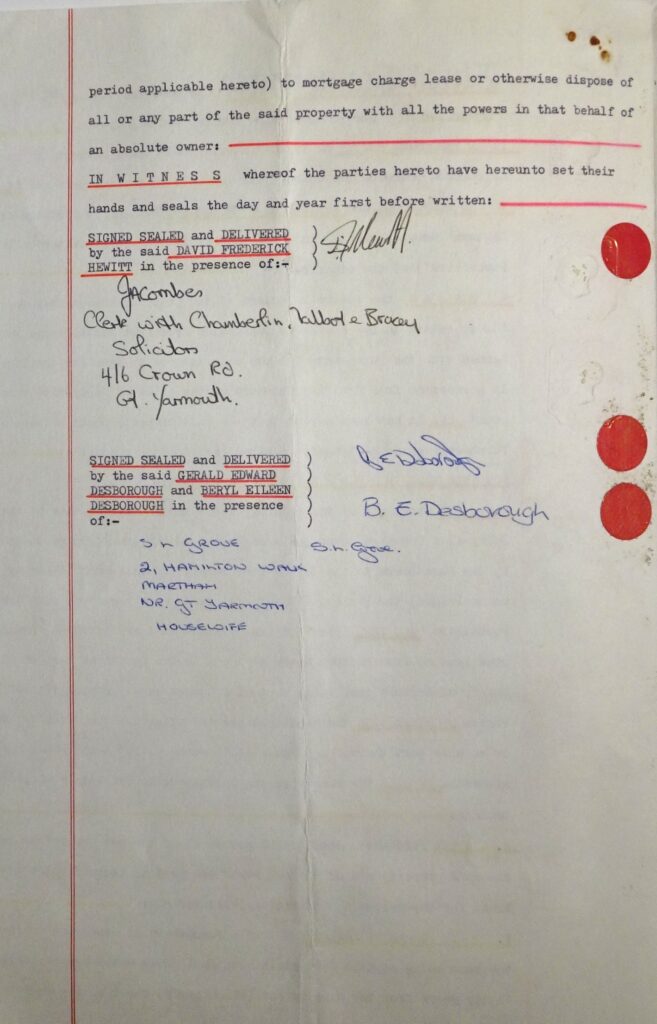 period applicable hereto) to mortgage charge lease or otherwise dispose of
all or any part of the said property with all the powers in that behalf of
an absolute owner:
IN WITNESS whereof the parties hereto have hereunto set their
hands and seals the day and year first before written:
SIGNED SEALED and DELIVERED
by the said DAVID FREDERICK
HEWITT in the presence of:-
JACombes
Clerk with Chamberlin, Talbot & Bracey
Solicitors
4/6 Crown Rd.
Gt. Yarmouth.
SIGNED SEALED and DELIVERED
by the said GERALD EDWARD
DESBOROUGH and BERYL EILEEN
DESBOROUGH in the presence
of:-
B. E. Desborough
S L GROVE S. L. Grove.
2, HAMILTON WALK
MARTHAM
NR. GT YARMOUTH
HOUSEWIFE